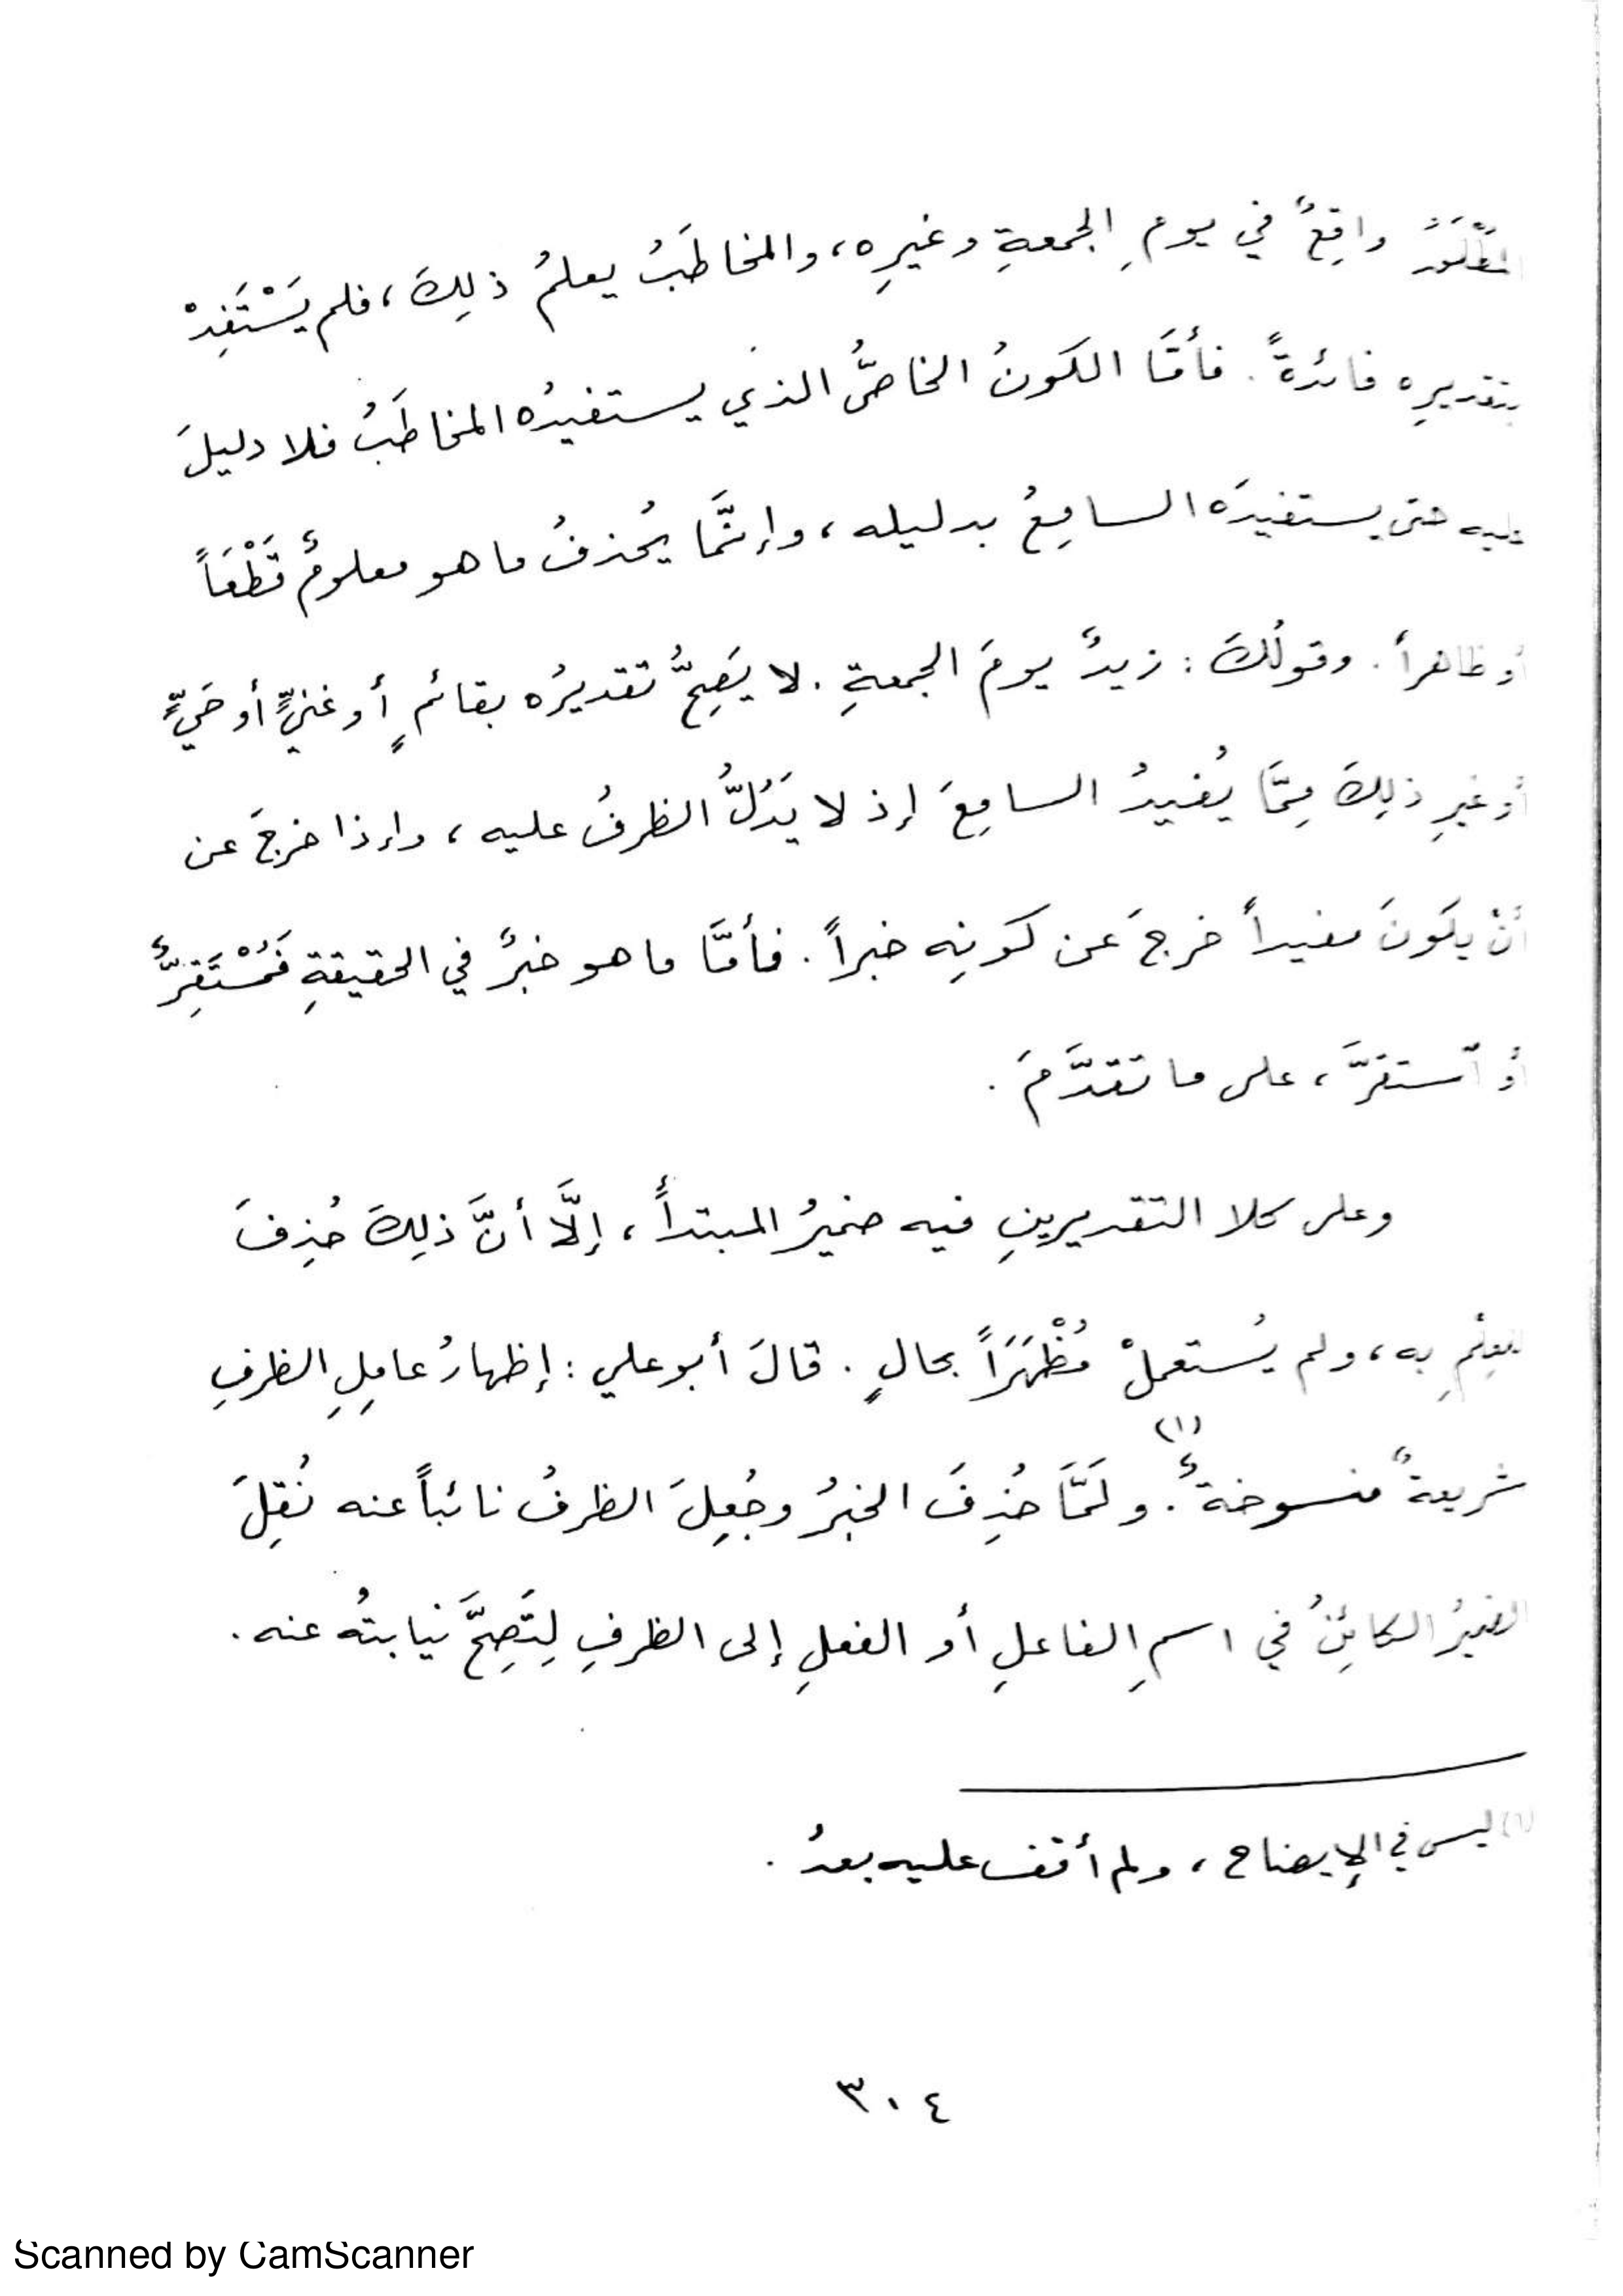 واقِعٌ في يومِ الجمعةِ وغيرِه، والمخاطَبُ يعلمُ ذلِكَ، فلم يَسْتَفِدْ
بتقديرِه فائدةً. فأمَّا الكونُ الخاصُّ الذي يستفيدُه المخاطَبُ فلا دليلَ
عليه حتى يستفيدَه السامِعُ بدليله، وإنَّما يُحذفُ ما هو معلومٌ قَطْعَاً
أو ظاهراً. وقولُكَ: زيدٌ يومَ الجمعةِ. لا يَصِحُّ تقديرُه بقائمٍ أو غنيٍّ أو حَيٍّ
أو غيرِ ذلِكَ مِمَّا يُفيدُ السامِعَ إذ لا يَدُلُّ الظرفُ عليه، وإذا خرجَ عن
أنْ يكونَ مفيداً خرجَ عن كونِه خبراً. فأمَّا ما هو خبرٌ في الحقيقةِ فَمُسْتَقِرٌّ
أو ٱستقرَّ، على ما تقدَّمَ.
وعلى كلا التقديرينِ فيه ضميرُ المبتدأً، إلَّا أنَّ ذلِكَ حُذِفَ
للعِلْمِ به، ولم يُستعملْ مُظْهَرَاً بحالٍ. قالَ أبو علي: إظهارُ عامِلِ الظرفِ
شريعةٌ منسوخةٌ(١). ولَمَّا حُذِفَ الخبرُ وجُعِلَ الظرفُ نائباً عنه نُقِلَ
الضميرُ الكائِنُ في اسمِ الفاعلِ أو الفعلِ إلى الظرفِ لِتَصِحَّ نيابتُه عنه.
(١) ليس في الإيضاح، ولم أقف عليه بعدُ.
٣٠٤
Scanned by CamScanner